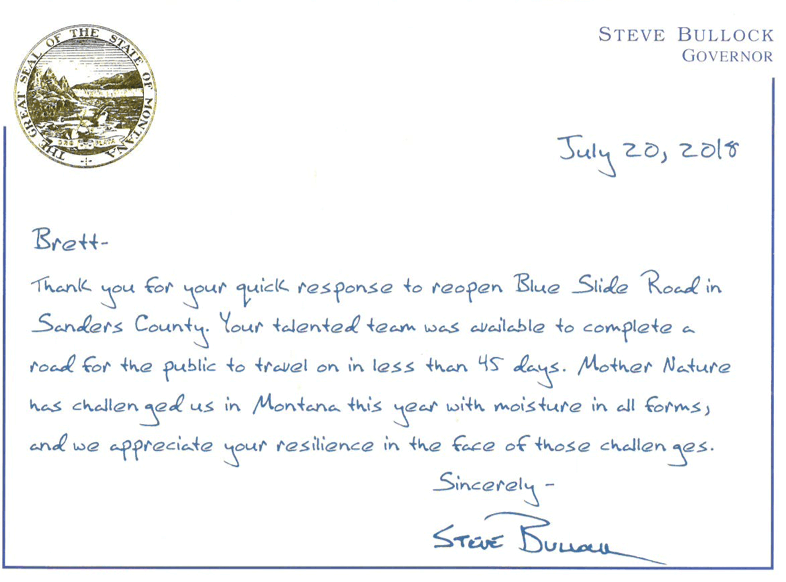 THE GREAT SEAL OF THE STATE OF MONTANA
STEVE BULLOCK
GOVERNOR
July 20, 2018
Brett-
Thank you for your quick response to reopen Blue Slide Road in
Sanders County. Your talented team was available to complete a
road for the public to travel on in less than 45 days. Mother Nature
has challenged us in Montana this year with moisture in all forms,
and we appreciate your resilience in the face of those challenges.
Sincerely-
STEVE BULLOCK